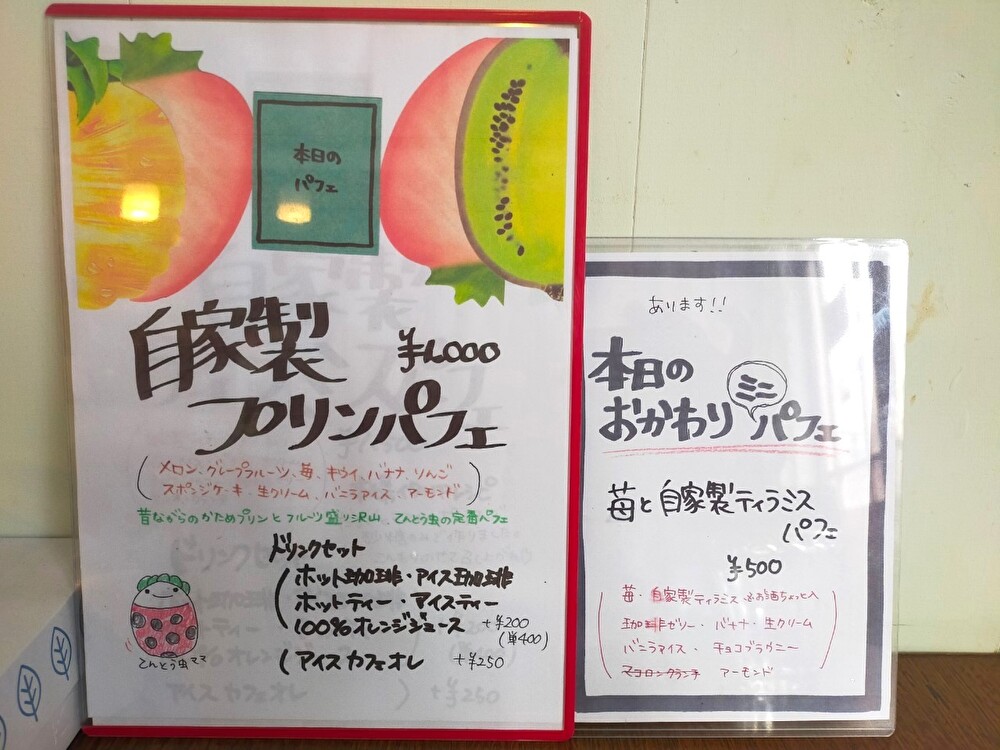 本日の
パフェ
自家製
¥1,000
プリンパフェ
(メロン、グレープフルーツ、苺、キウイ、バナナ、りんご
スポンジケーキ、生クリーム、バニラアイス、アーモンド)
昔ながらのかためプリンとフルーツ盛り沢山、てんとう虫の定番パフェ
ドリンクセット
(ホット珈琲・アイス珈琲
ホットティー・アイスティー
100%オレンジジュース +¥200
(単400)
(アイスカフェオレ +¥250
てんとう虫ママ
あります!!
本日の
おかわりミニパフェ
苺と自家製ティラミス
パフェ
¥500
(苺・自家製ティラミス ※お酒ちょっと入
珈琲ゼリー・バナナ・生クリーム
バニラアイス・チョコブラウニー
マコロンクランチ アーモンド)